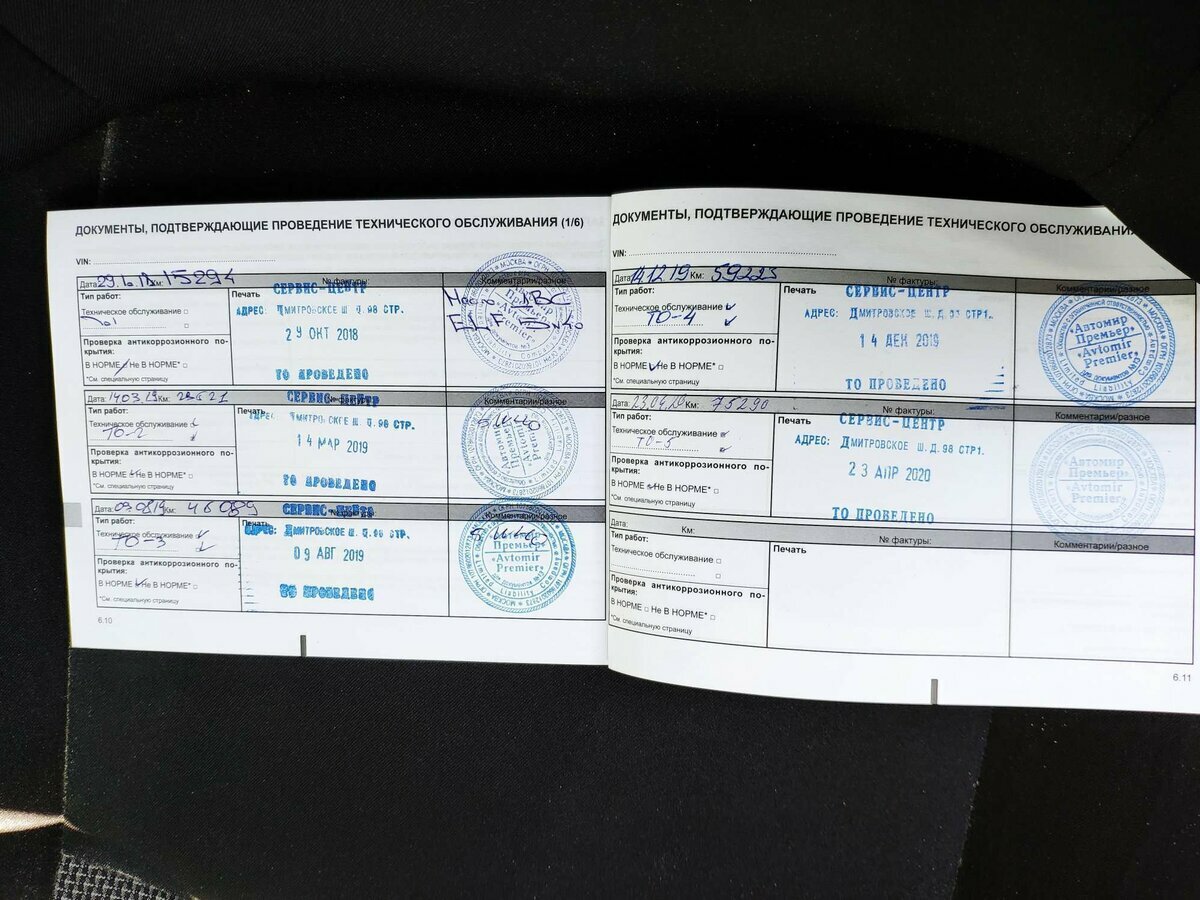 ДОКУМЕНТЫ, ПОДТВЕРЖДАЮЩИЕ ПРОВЕДЕНИЕ ТЕХНИЧЕСКОГО ОБСЛУЖИВАНИЯ (1/6)
VIN:
Дата: Км: 15294 № фактуры: Комментарии/разное
Тип работ:
Техническое обслуживание
Проверка антикоррозионного по-
крытия:
В НОРМЕ Не В НОРМЕ*
*См. специальную страницу
Печать
СЕРВИС-ЦЕНТР
АДРЕС: ДМИТРОВСКОЕ Ш. Д.98 СТР.
29 ОКТ 2018
ТО ПРОВЕДЕНО
Дата: Км: № фактуры: Комментарии/разное
Тип работ:
Техническое обслуживание
ТО-2
Проверка антикоррозионного по-
крытия:
В НОРМЕ Не В НОРМЕ*
*См. специальную страницу
Печать
СЕРВИС-ЦЕНТР
АДРЕС: ДМИТРОВСКОЕ Ш. Д.98 СТР.
14 МАР 2019
ТО ПРОВЕДЕНО
Дата: 09.08.19 Км: 46089 Комментарии/разное
Тип работ:
Техническое обслуживание
ТО-3
Проверка антикоррозионного по-
крытия:
В НОРМЕ Не В НОРМЕ*
*См. специальную страницу
Печать
СЕРВИС-ЦЕНТР
АДРЕС: ДМИТРОВСКОЕ Ш. Д.98 СТР.
09 АВГ 2019
ТО ПРОВЕДЕНО
Премьер»
«Avtomir
Premier»
6.10
ДОКУМЕНТЫ, ПОДТВЕРЖДАЮЩИЕ ПРОВЕДЕНИЕ ТЕХНИЧЕСКОГО ОБСЛУЖИВАНИ
VIN:
Дата: 14.12.19 Км: 59225 № фактуры: Комментарии/разное
Тип работ:
Техническое обслуживание
ТО-4
Проверка антикоррозионного по-
крытия:
В НОРМЕ Не В НОРМЕ*
*См. специальную страницу
Печать
СЕРВИС-ЦЕНТР
АДРЕС: ДМИТРОВСКОЕ Ш.Д.98 СТР1.
14 ДЕК 2019
ТО ПРОВЕДЕНО
«Автомир
Премьер»
«Avtomir
Premier»
Дата: 23.04.20 Км: 75290 № фактуры: Комментарии/разное
Тип работ:
Техническое обслуживание
ТО-5
Проверка антикоррозионного по-
крытия:
В НОРМЕ Не В НОРМЕ*
*См. специальную страницу
Печать
СЕРВИС-ЦЕНТР
АДРЕС: ДМИТРОВСКОЕ Ш.Д.98 СТР1.
23 АПР 2020
ТО ПРОВЕДЕНО
«Автомир
Премьер»
«Avtomir
Premier»
Дата: Км: № фактуры: Комментарии/разное
Тип работ:
Техническое обслуживание
Проверка антикоррозионного по-
крытия:
В НОРМЕ Не В НОРМЕ*
*См. специальную страницу
Печать
6.11